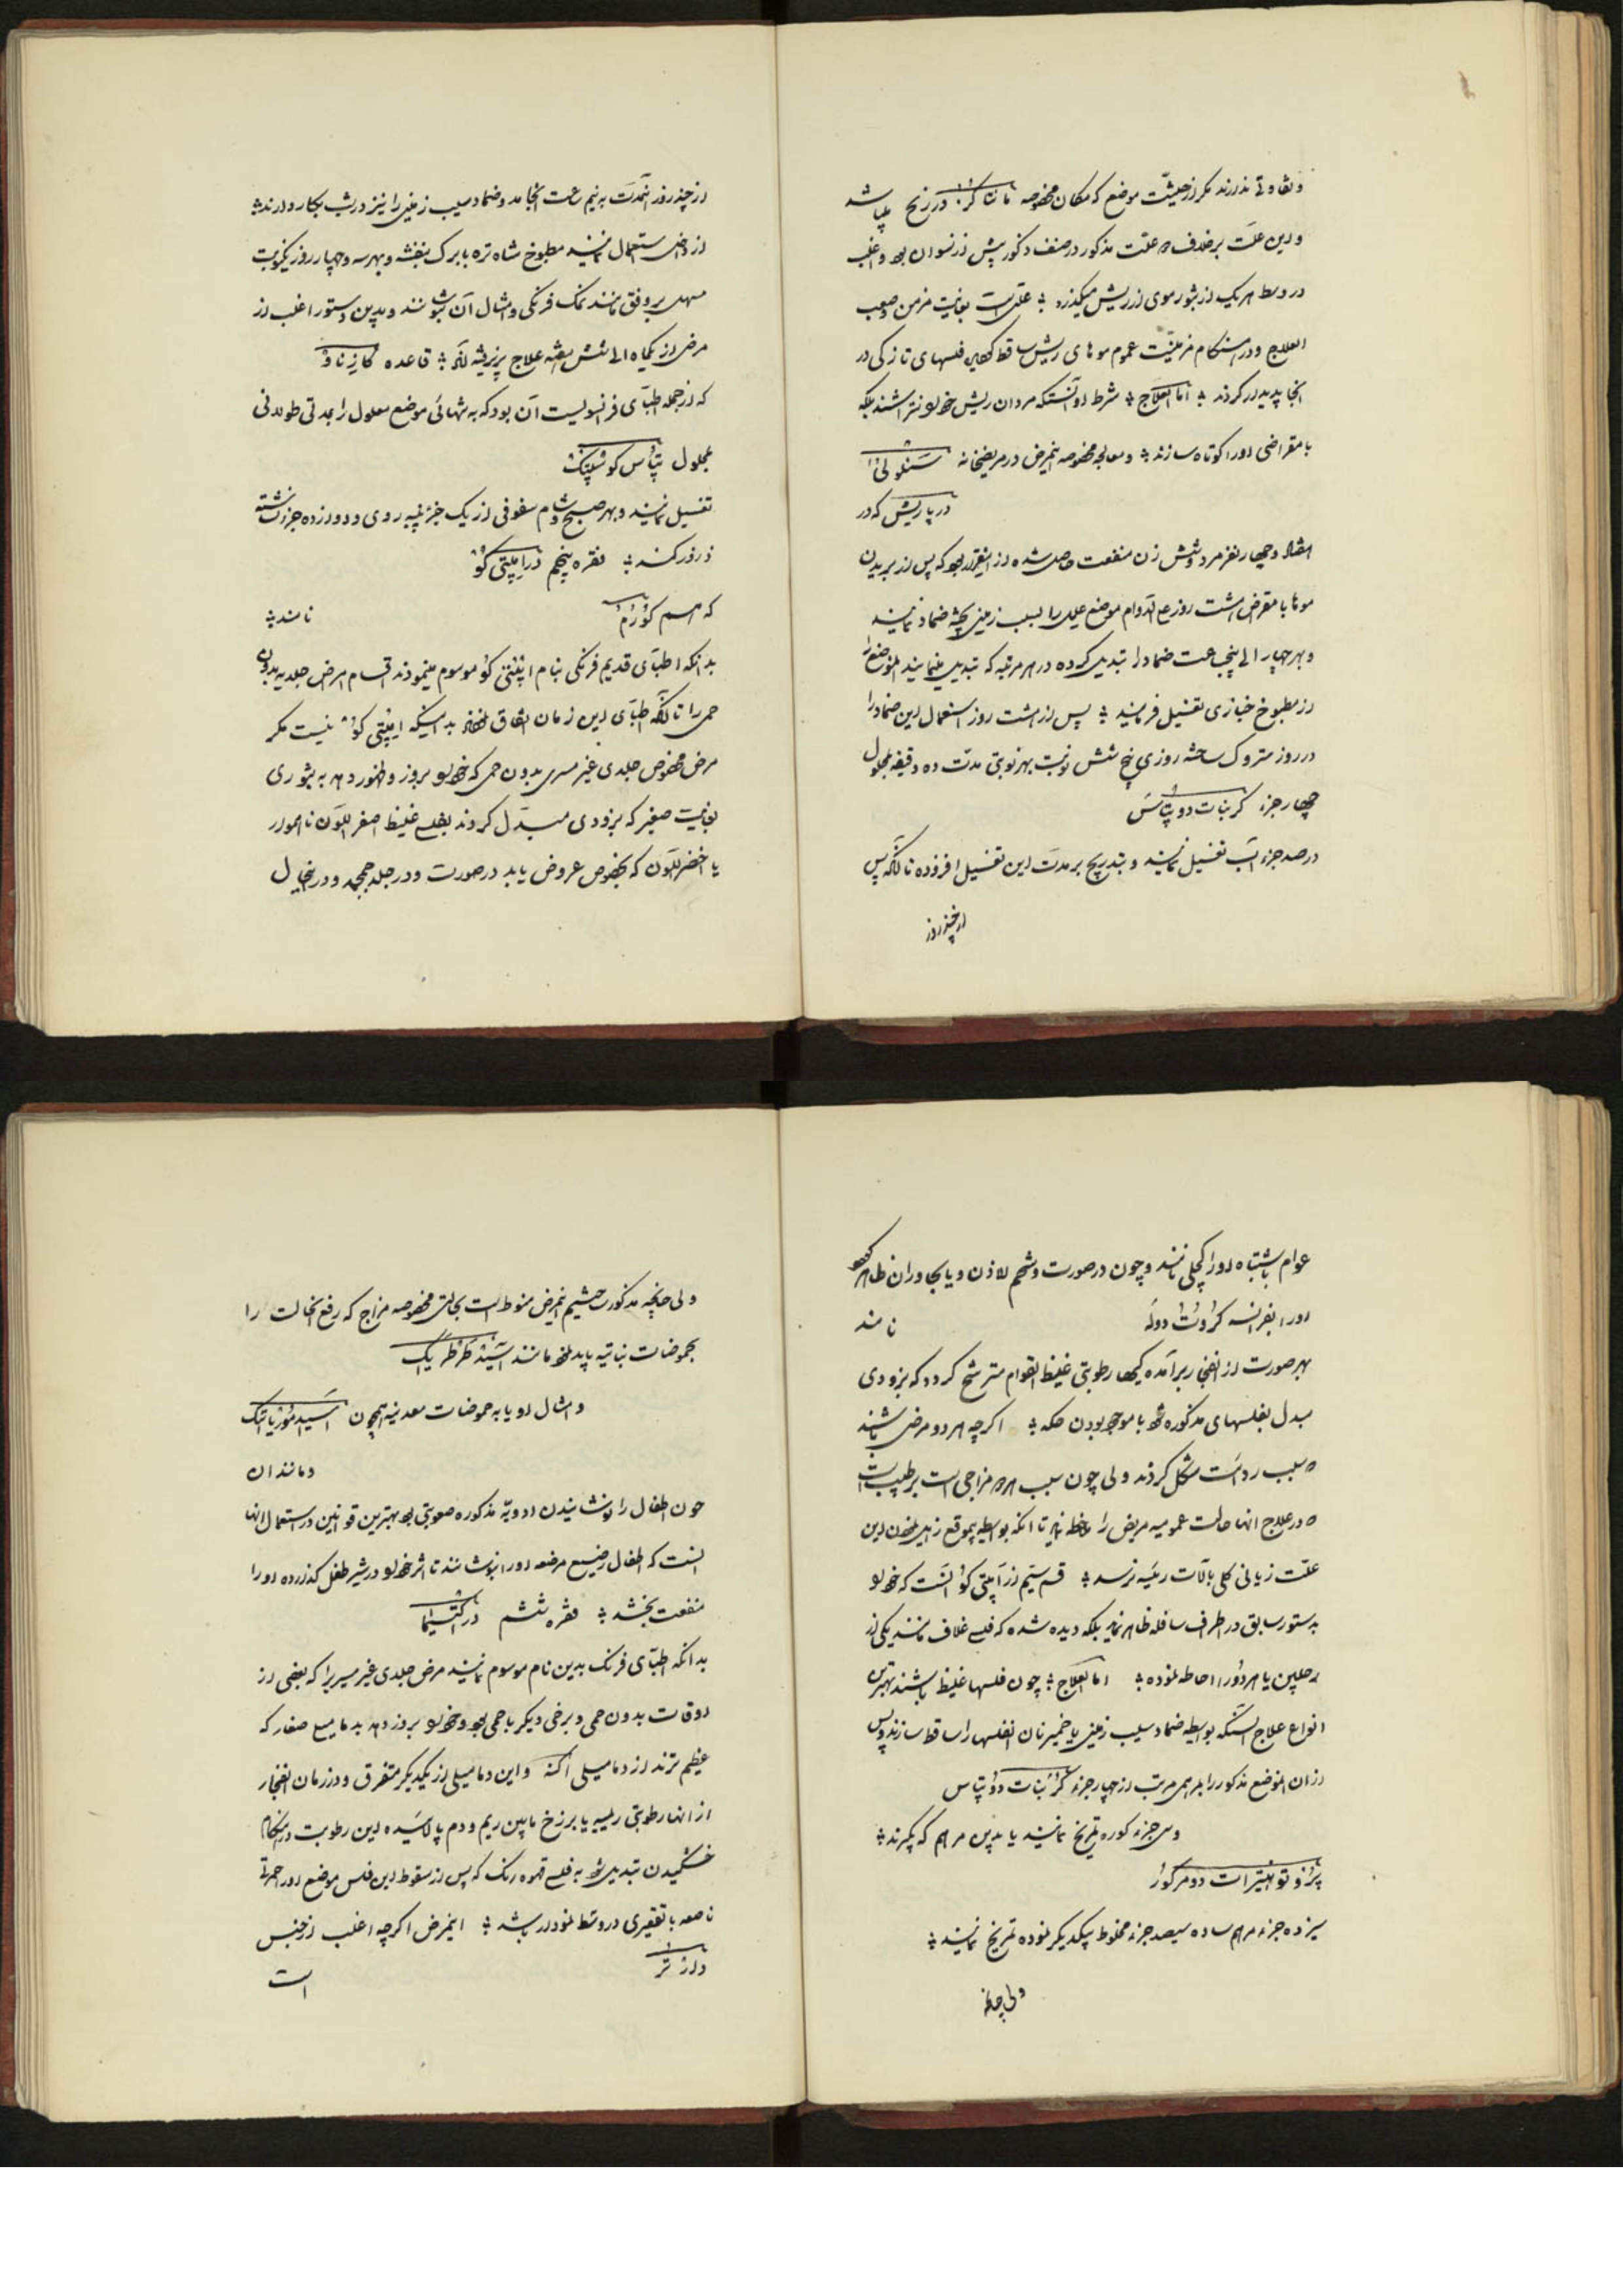 و تفاوتی ندارند مگر از حیثیت موضع که مکان مخصوصه در زنخ میباشد
و این علت برخلاف علت مذکور در صنف ذکور بیش از نسوان بود و اغلب
در وسط هر یک از بثور موی از ریش میگذرد علتی است بغایت مزمن و صعب
العلاج و در هنگام مزمنیت عموم موهای ریش ساقط فلسهای تازگی در
انجا پدیدار گردند اما العلاج شرط او آنستکه مردان ریش خود را نتراشند بلکه
با مقراضی او را کوتاه سازند و معالجه مخصوصه اینمرض در مریضخانه
در پاریش که در
و چهار نفر مرد و شش زن منفعت حاصل شده از اینقرار بود که پس از بریدن
موها با مقراض هشت روز علی الدوام موضع علیل را بسیب زمینی پخته ضماد نمایند
و بهر چهار الی پنج ساعت ضماد را تبدیل کرده در هر مرتبه که تبدیل مینمایند الموضع را
از مطبوخ خبازی تغسیل فرمایند پس از هشت روز استعمال این ضماد را
در روز متروک ساخته روزی پنج شش نوبت بهر نوبتی مدت ده دقیقه بمحلول
چهار جزء کربنات دو پتاس
در صد جزء آب تغسیل نمایند و بتدریج بر مدت این تغسیل افزوده تا آنکه پس
از چند روز
از چند روز آنمدت به نیم ساعت انجامد و ضماد سیب زمینی را نیز در شب بکار دارند
از داخل استعمال نمایند مطبوخ شاه تره با برک بنفشه و بهر سه و چهار روز یکنوبت
مسهلی بر وفق مانند نمک فرنگی و امثال آن بنوشند و بدین دستور اغلب از
مرض از یکماه الی شش هفته علاج پذیرفته قاعده کازناو
که از جمله اطبای فرانسویست آن بود که به تنهائی موضع معلول را بمدتی طولانی
بمحلول پتاس کوستیک
تغسیل نمایند و بهر صبح و شام سفوفی از یک جزء پنبه روی و دوازده جزء نشاسته
ذرور کنند فقره پنجم در امپتی گو
که هم کورم نامند
بدانکه اطبای قدیم فرنگی بنام امپتی گو موسوم مینمودند اقسام مرض جلدیه بدون
حمی را تا آنکه اطبای این زمان اتفاق بدینکه امپتی گو نیست مگر
مرض مخصوص جلدی غیر مسری بدون حمی که خود را بروز و ظهور دهد به بثوری
بغایت صغیر که بزودی مبدل گردند بفلس غلیظ اصفر اللون ناهموار
یا اخضر اللون که بخصوص عروض یابد در صورت و در جلد جمجمه و در اینحال
عوام باشتباه او را کچلی نامند و چون در صورت و شحم الاذن و یا بجاوران ظاهر
او را بفرانسه کروت دوله نامند
بهر صورت از انفجار برآمده گیها رطوبتی غلیظ القوام مترشح گردد که بزودی
مبدل بفلسهای مذکوره شود با موجود بودن حکه اگرچه هر دو مرض باشند
سبب ردائت شکل گردند ولی چون سبب مزاجی است بر طبیب است
در علاج انها حالت عمومیه مریض را ملاحظه نماید تا انکه بواسطه بیموقع زایل نمودن این
علت زیانی کلی بآلات رئیسه نرسد قسم سیم از امپتی گو آنست که خود را
بدستور سابق در اطراف سافله ظاهر نماید بلکه دیده شده که فلسی غلاف مانند یکی از
رجلین یا هر دو را احاطه نموده اما العلاج چون فلسها غلیظ باشند بهترین
انواع علاج آنستکه بواسطه ضماد سیب زمینی یا خمیر نان انفلسها را ساقط سازند و پس
از ان الموضع مذکور را بمرهمی مرتب از چهار جزء کربنات دو پتاس
و سی جزء کوره تمریخ نمایند یا بدین مرهم که بگیرند
پرتو نیترات دو مرکور
سیزده جزء مرهم ساده سیصد جزء مخلوط بیکدیگر نموده تمریخ نمایند
ولی چنانچه
ولی چنانچه مذکور ساختیم اینمرض منوط است بحالتی مخصوصه مزاج که رفع انحالت را
بحموضات نباتیه باید نمود مانند آسید طرطریک
و امثال او یا به حموضات معدنیه همچون آسید موریاتیک
و مانند ان
چون اطفال را نوشانیدن ادویه مذکوره صعوبتی بود بهترین قوانین در استعمال انها
آنست که اطفال رضیع مرضعه او را بنوشانند تا اثر خود را در شیر طفل گذارده او را
منفعت بخشد فقره ششم در اکتیما
بدانکه اطبای فرنگ بدین نام موسوم نمایند مرض جلدی غیر مسریرا که بعضی از
اوقات بدون حمی و برخی دیگر با حمی بود و خود را بروز دهد بدمامیل صغار که
عظیم ترند از دمامیلی آکنه و این دمامیل از یکدیگر متفرق و در زمان انفجار
از انها رطوبتی ریمیه یا برزخ مابین ریم و دم پالائیده این رطوبت در هنگام
خشکیدن تبدیل شود به فلسی قهوه رنگ که پس از سقوط این فلس موضع او را حمرتی
ناصعه با تقعیری در وسط نمودار باشد اینمرض اگرچه اغلب از جنس
دارتر است